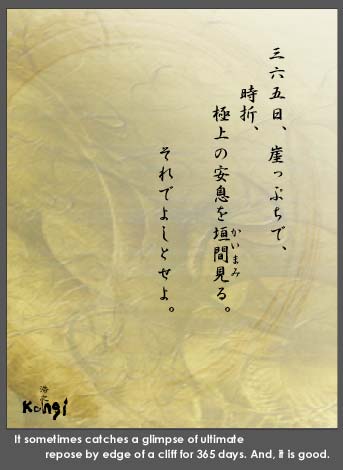 三六五日、崖っぷちで、
時折、
極上の安息を垣間見る。
かいまみ
それでよしとせよ。
Kongi
It sometimes catches a glimpse of ultimate
repose by edge of a cliff for 365 days. And, it is good.